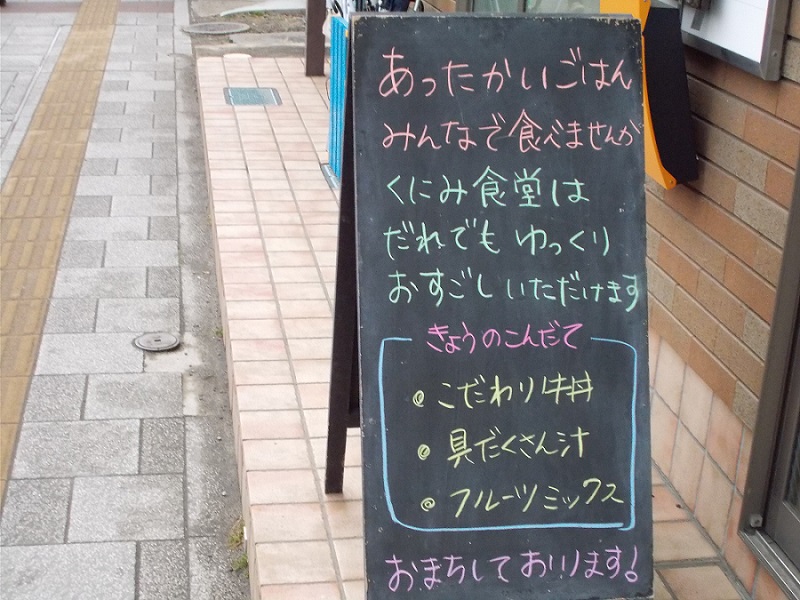 あったかいごはん
みんなで食べませんか
くにみ食堂は
だれでもゆっくり
おすごしいただけます
きょうのこんだて
こだわり牛丼
具だくさん汁
フルーツミックス
おまちしております!